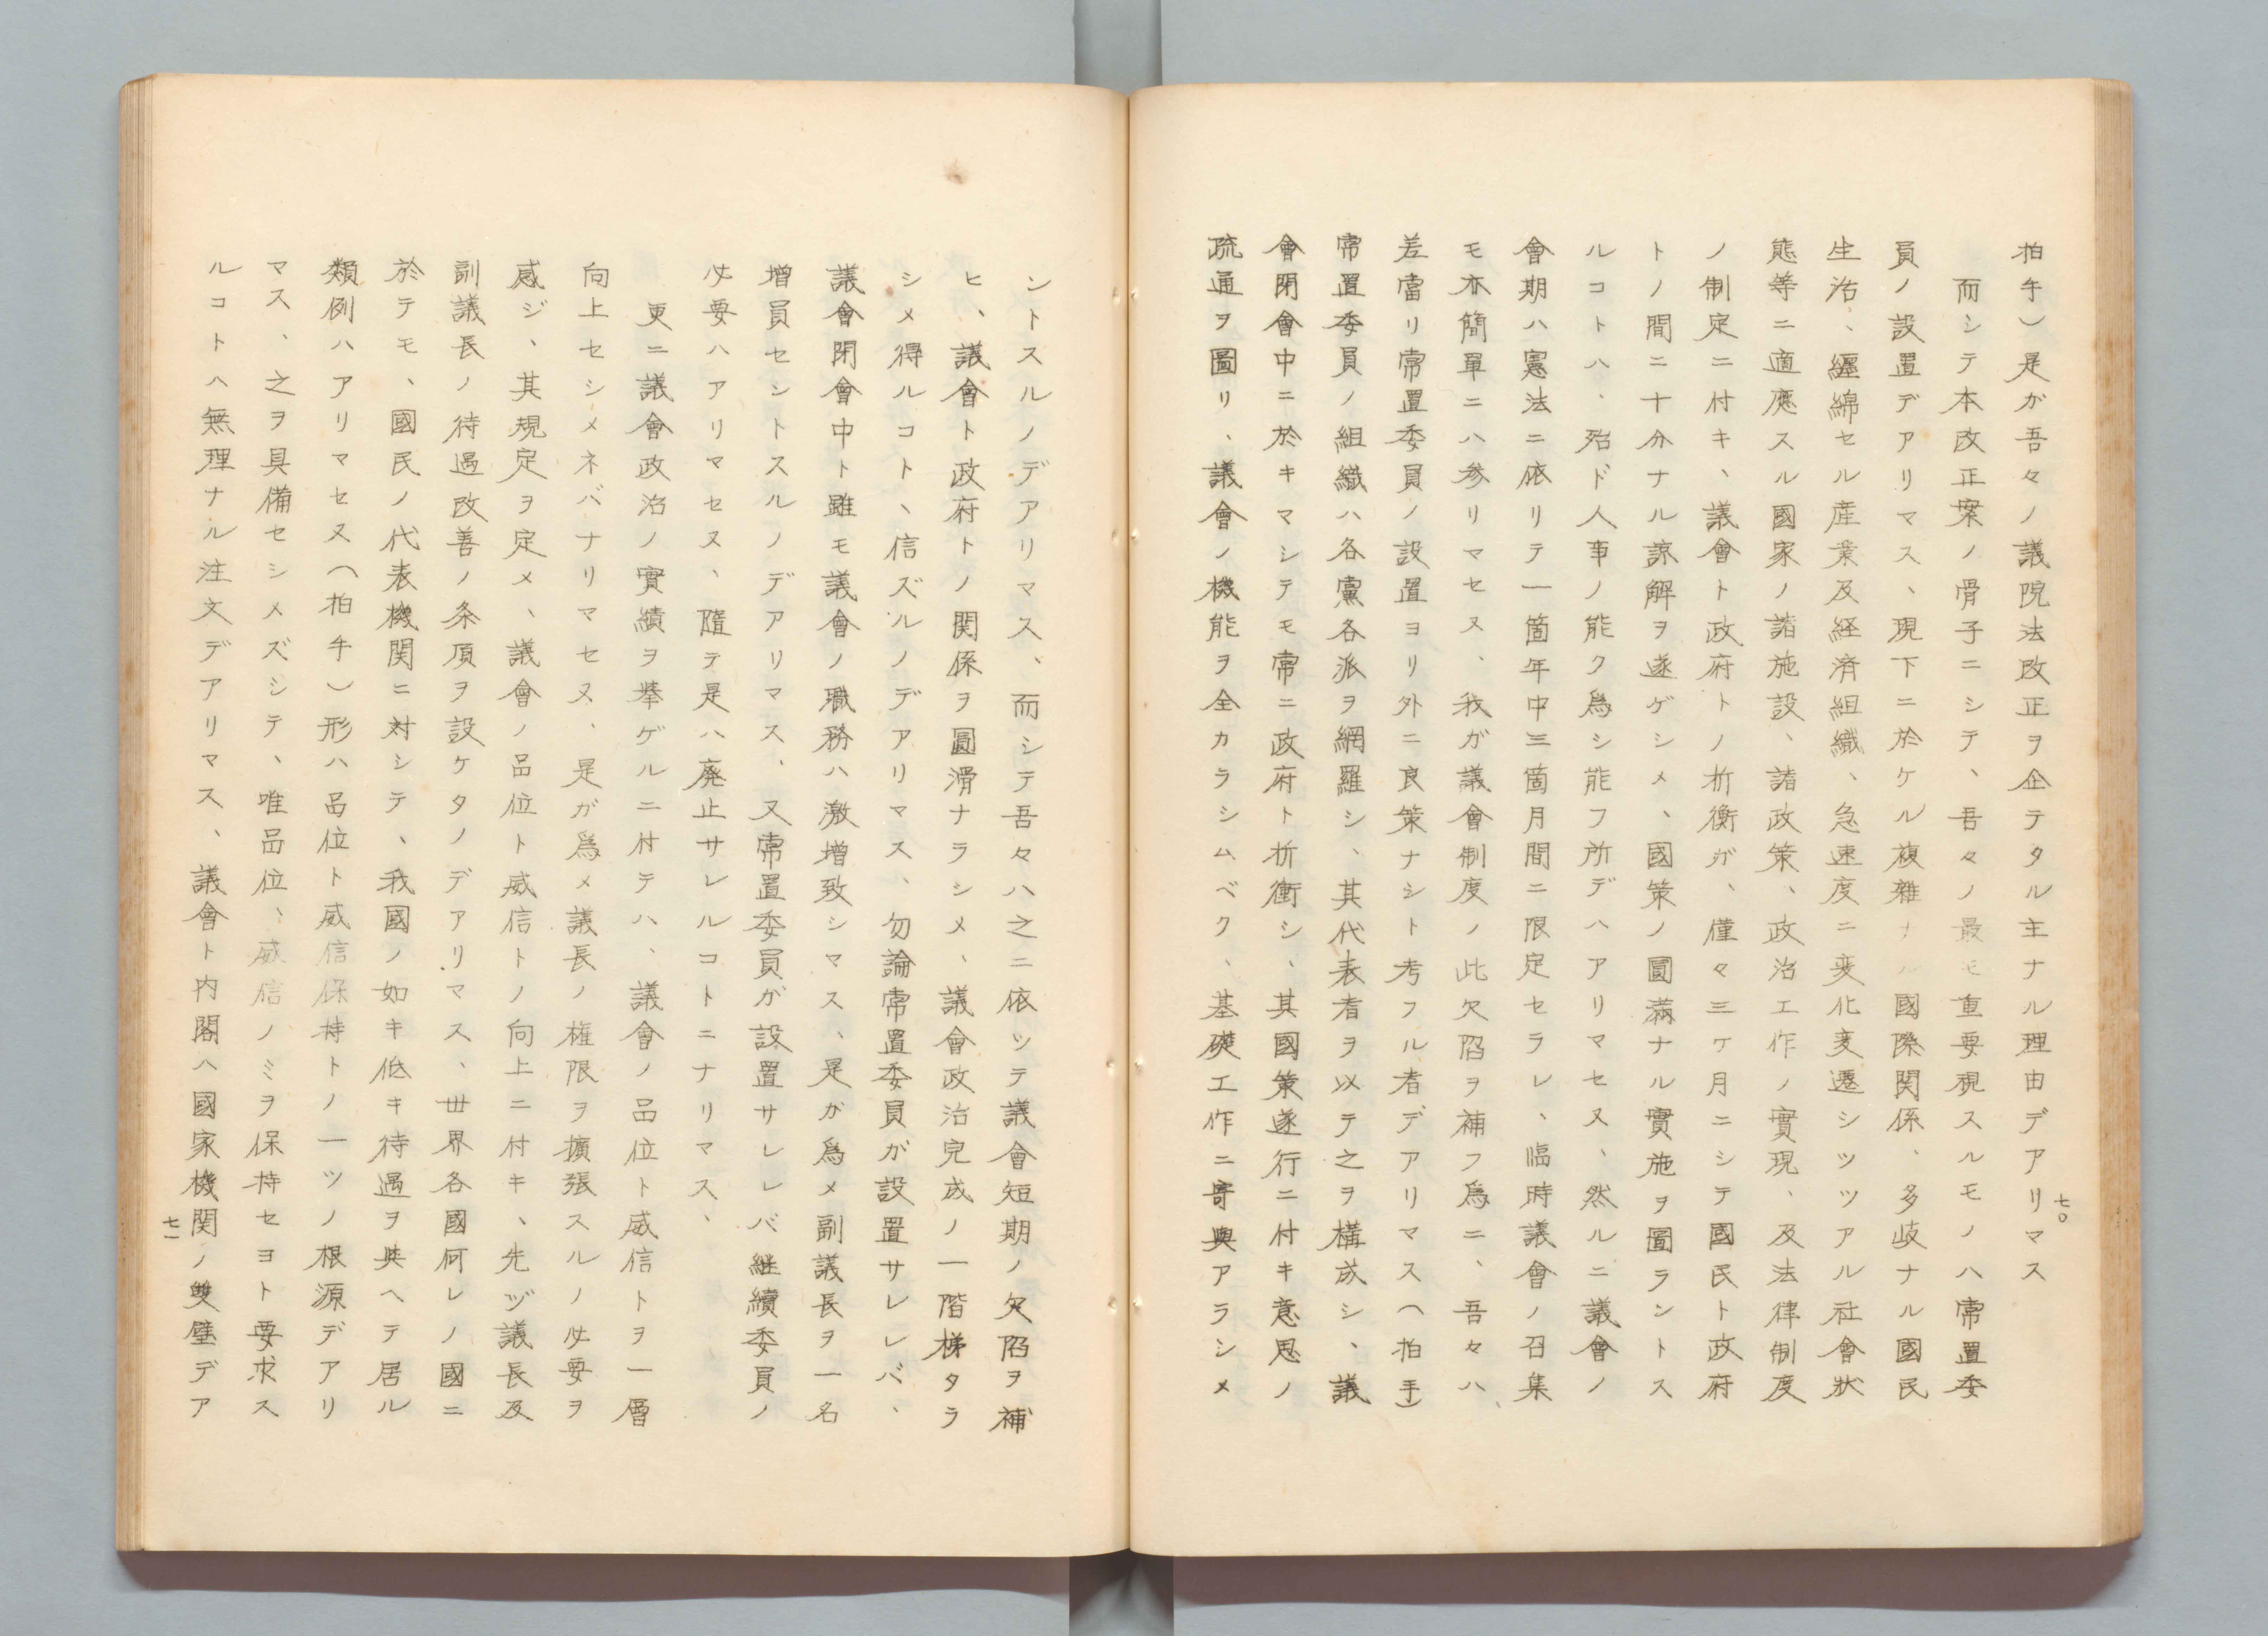 拍手)是ガ吾々ノ議院法改正ヲ企テタル主ナル理由デアリマス
而シテ本改正案ノ骨子ニシテ、吾々ノ最モ重要視スルモノハ常置委
員ノ設置デアリマス、現下ニ於ケル複雜ナル國際関係、多岐ナル國民
生治、纒綿セル産業及経済組織、急速度ニ変化変遷シツツアル社會狀
態等ニ適應スル國家ノ諸施設、諸政策、政治工作ノ實現、及法律制度
ノ制定ニ付キ、議會ト政府トノ折衡ガ、僅々三ケ月ニシテ國民ト政府
トノ間ニ十分ナル諒解ヲ遂ゲシメ、國策ノ圓滿ナル實施ヲ圖ラントス
ルコトハ、殆ド人事ノ能ク爲シ能フ所デハアリマセヌ、然ルニ議會ノ
會期ハ憲法ニ依リテ一箇年中三箇月間ニ限定セラレ、臨時議會ノ召集
モ亦簡單ニハ參リマセヌ、我ガ議會制度ノ此欠陷ヲ補フ爲ニ、吾々ハ、
差當リ常置委員ノ設置ヨリ外ニ良策ナシト考フル者デアリマス(拍手)
常置委員ノ組織ハ各黨各派ヲ網羅シ、其代表者ヲ以テ之ヲ構成シ、議
會閉會中ニ於キマシテモ常ニ政府ト折衝シ、其國策遂行ニ付キ意思ノ
疏通ヲ圖リ、議會ノ機能ヲ全カラシムベク、基礎工作ニ寄與アラシメ
七〇
ントスルノデアリマス、而シテ吾々ハ之ニ依ツテ議會短期ノ欠陷ヲ補
ヒ、議會ト政府トノ関係ヲ圓滑ナラシメ、議會政治完成ノ一階梯タラ
シメ得ルコト、信ズルノデアリマス、勿論常置委員ガ設置サレレバ、
議會閉會中ト雖モ議會ノ職務ハ激增致シマス、是ガ爲メ副議長ヲ一名
增員セシトスルノデアリマス、又常置委員ガ設置サレレバ継續委員ノ
必要ハアリマセヌ、隨テ是ハ廃止サレルコトニナリマス、
更ニ議會政治ノ實績ヲ擧ゲルニ付テハ、議會ノ品位ト威信トヲ一層
向上セシメネバナリマセヌ、是ガ爲メ議長ノ権限ヲ擴張スルノ必要ヲ
感ジ、其規定ヲ定メ、議會ノ品位ト威信トノ向上ニ付キ、先ヅ議長及
副議長ノ待遇改善ノ条項ヲ設ケタノデアリマス、世界各國何レノ國ニ
於テモ、國民ノ代表機関ニ対シテ、我國ノ如キ低キ待遇ヲ與ヘテ居ル
類例ハアリマセヌ(拍手)形ハ品位ト威信保持トノ一ツノ根源デアリ
マス、之ヲ具備セシメズシテ、唯品位、威信ノミヲ保持セヨト要求ス
ルコトハ無理ナル注文デアリマス、議會ト内閣ハ國家機関ノ雙壁デア
七一